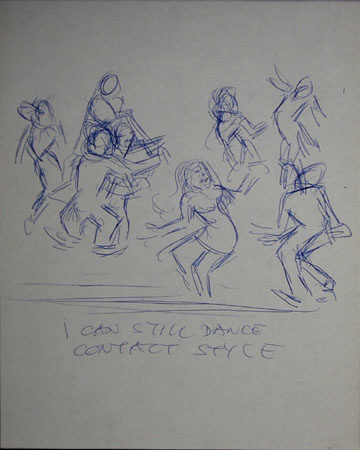 I CAN STILL DANCE
CONTACT STYLE